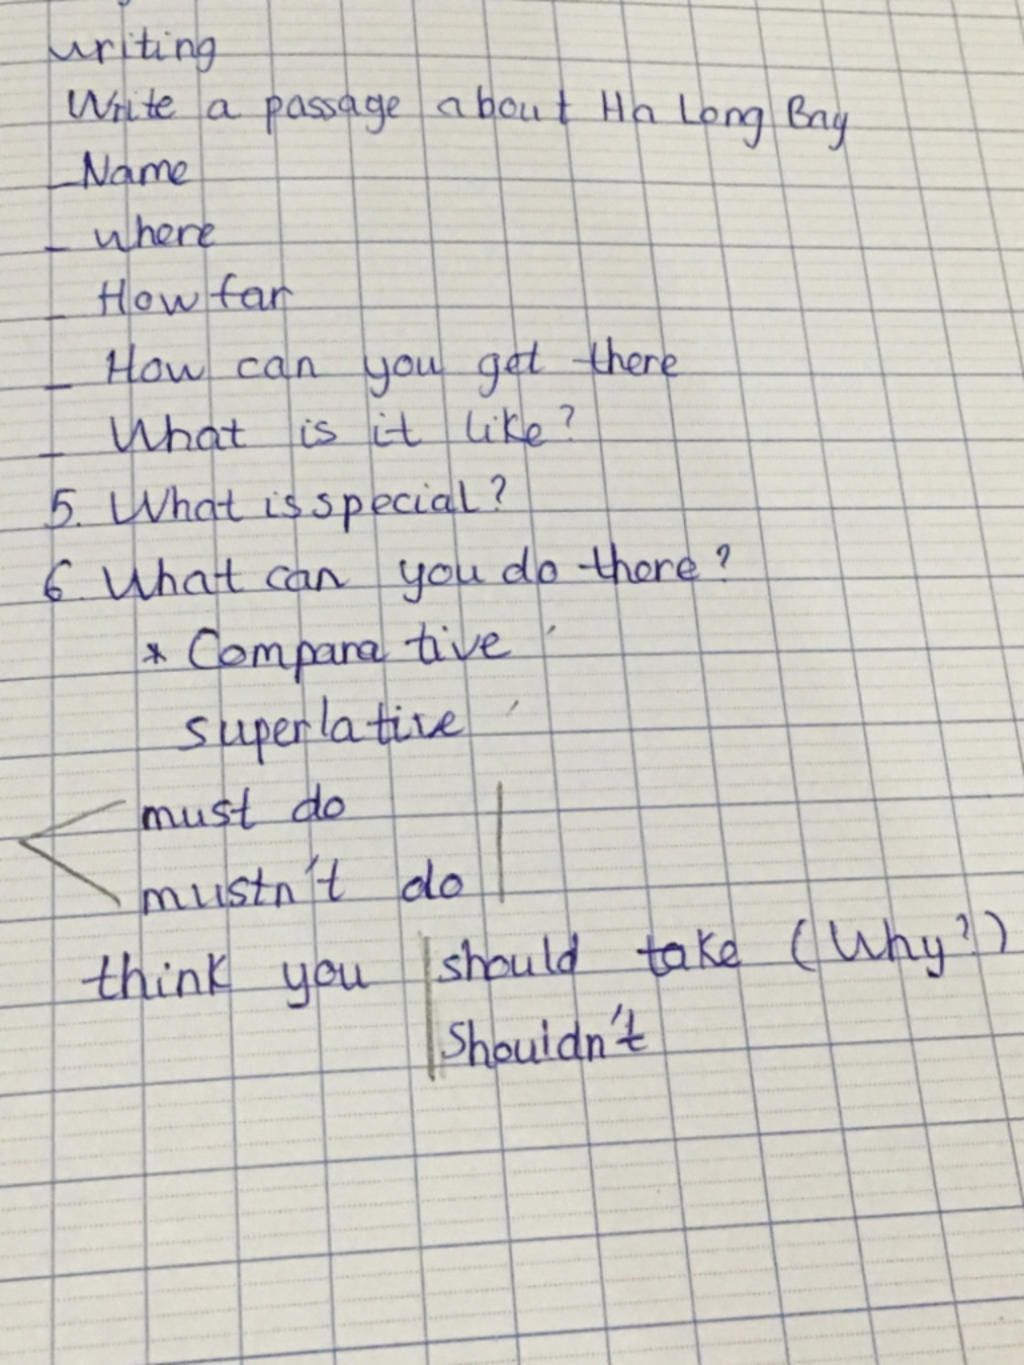 writing
Write a passage about Ha Long Bay
_ Name
_ where
_ How far
_ How can you get there
_ What is it like?
5. What is special?
6. What can you do there?
* Comparative
superlative
must do
mustn't do
think you should take (Why?)
Shouldn't